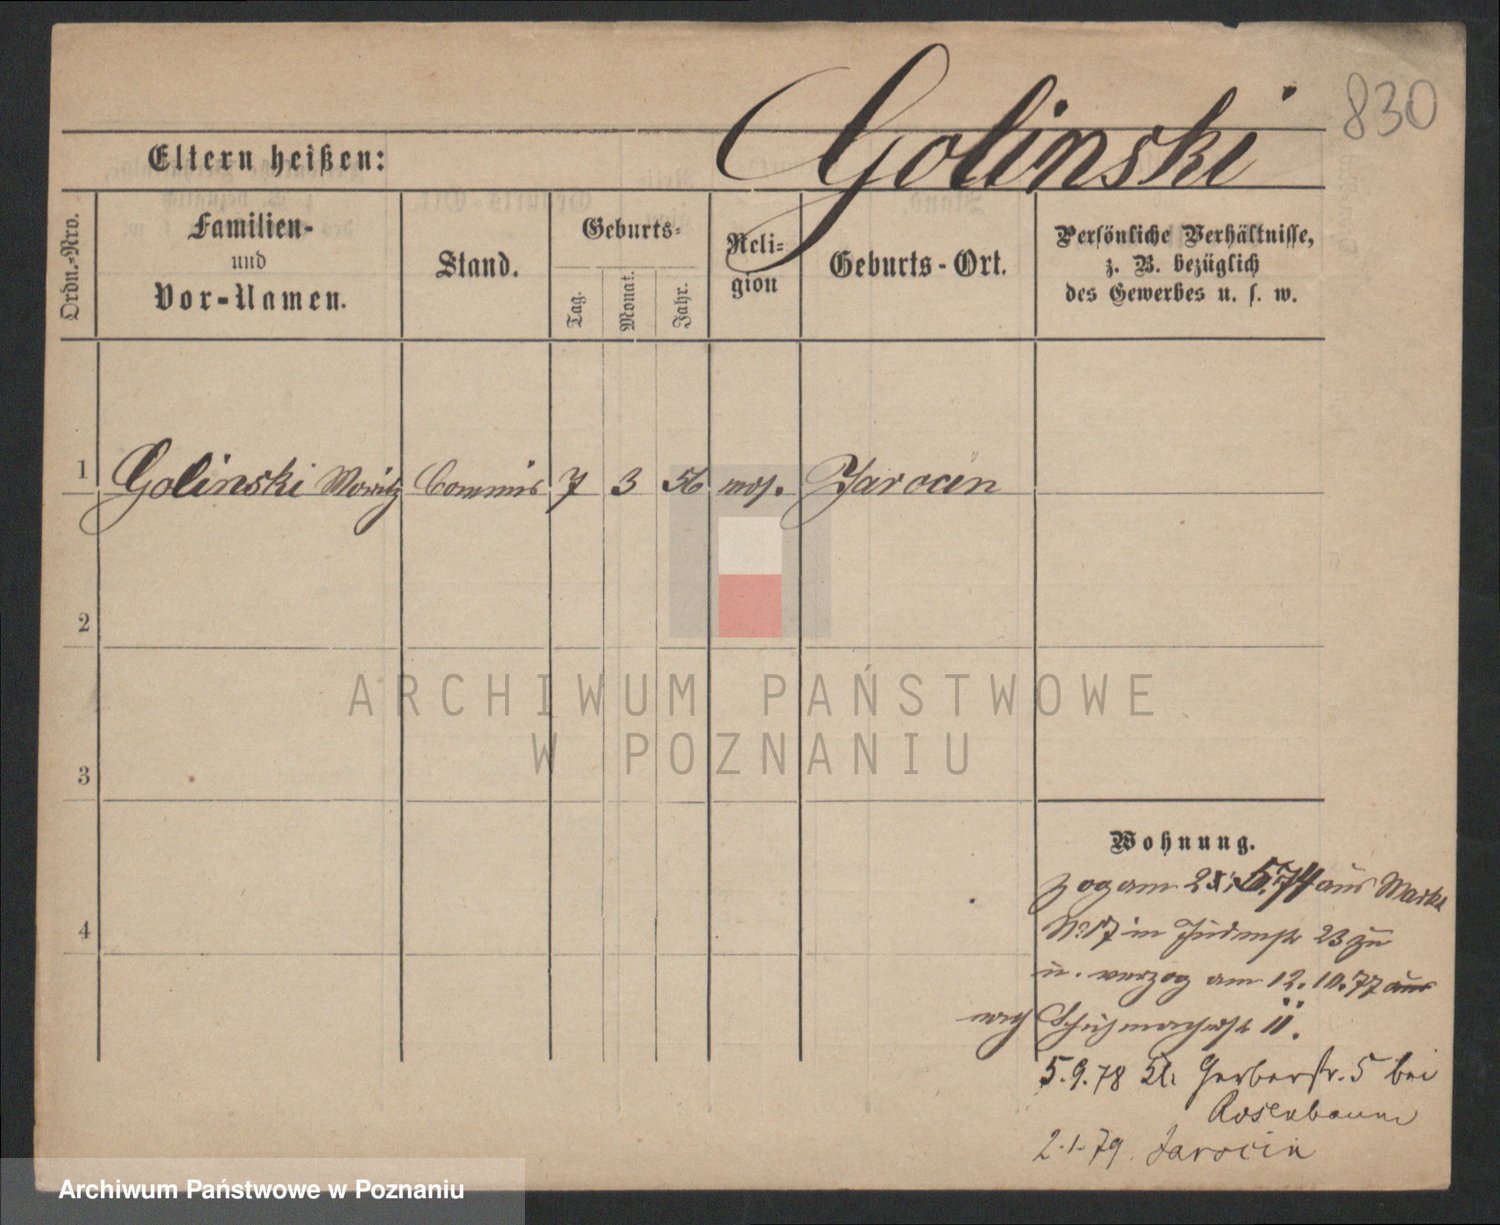 Golinski
830
Eltern heißen:
Ordn.-Nro.
Familien-
und
Vor-Namen.
Stand.
Geburts-
Tag.
Monat.
Jahr.
Reli-
gion
Geburts-Ort.
Persönliche Verhältnisse,
z. B. bezüglich
des Gewerbes u. s. w.
1 Golinski Moritz Commis 7 3 56 mos. Jarocin
2
3
4
ARCHIWUM PAŃSTWOWE
W POZNANIU
Wohnung.
zog am 574 aus Markt
No 17 in Judenstr 23 zu
u. verzog am 12.10.77 aus
nach Schuhmacherstr 11.
5.9.78 Kl. Gerberstr. 5 bei
Rosenbaum
2.1.79. Jarocin
Archiwum Państwowe w Poznaniu